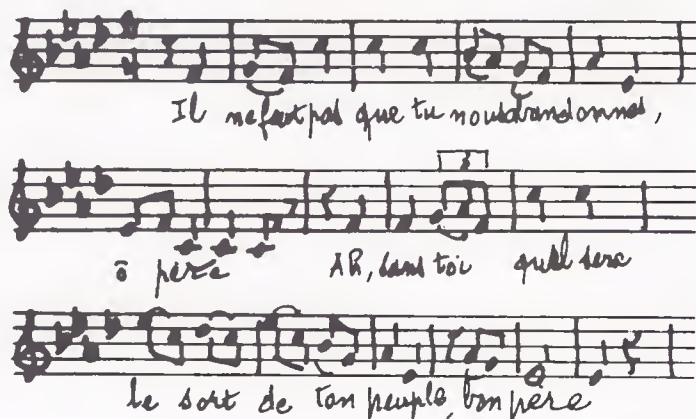 Il ne faut pas que tu nous abandonnes,
3
ô père Ah, sans toi quel sera
le sort de ton peuple, bon père